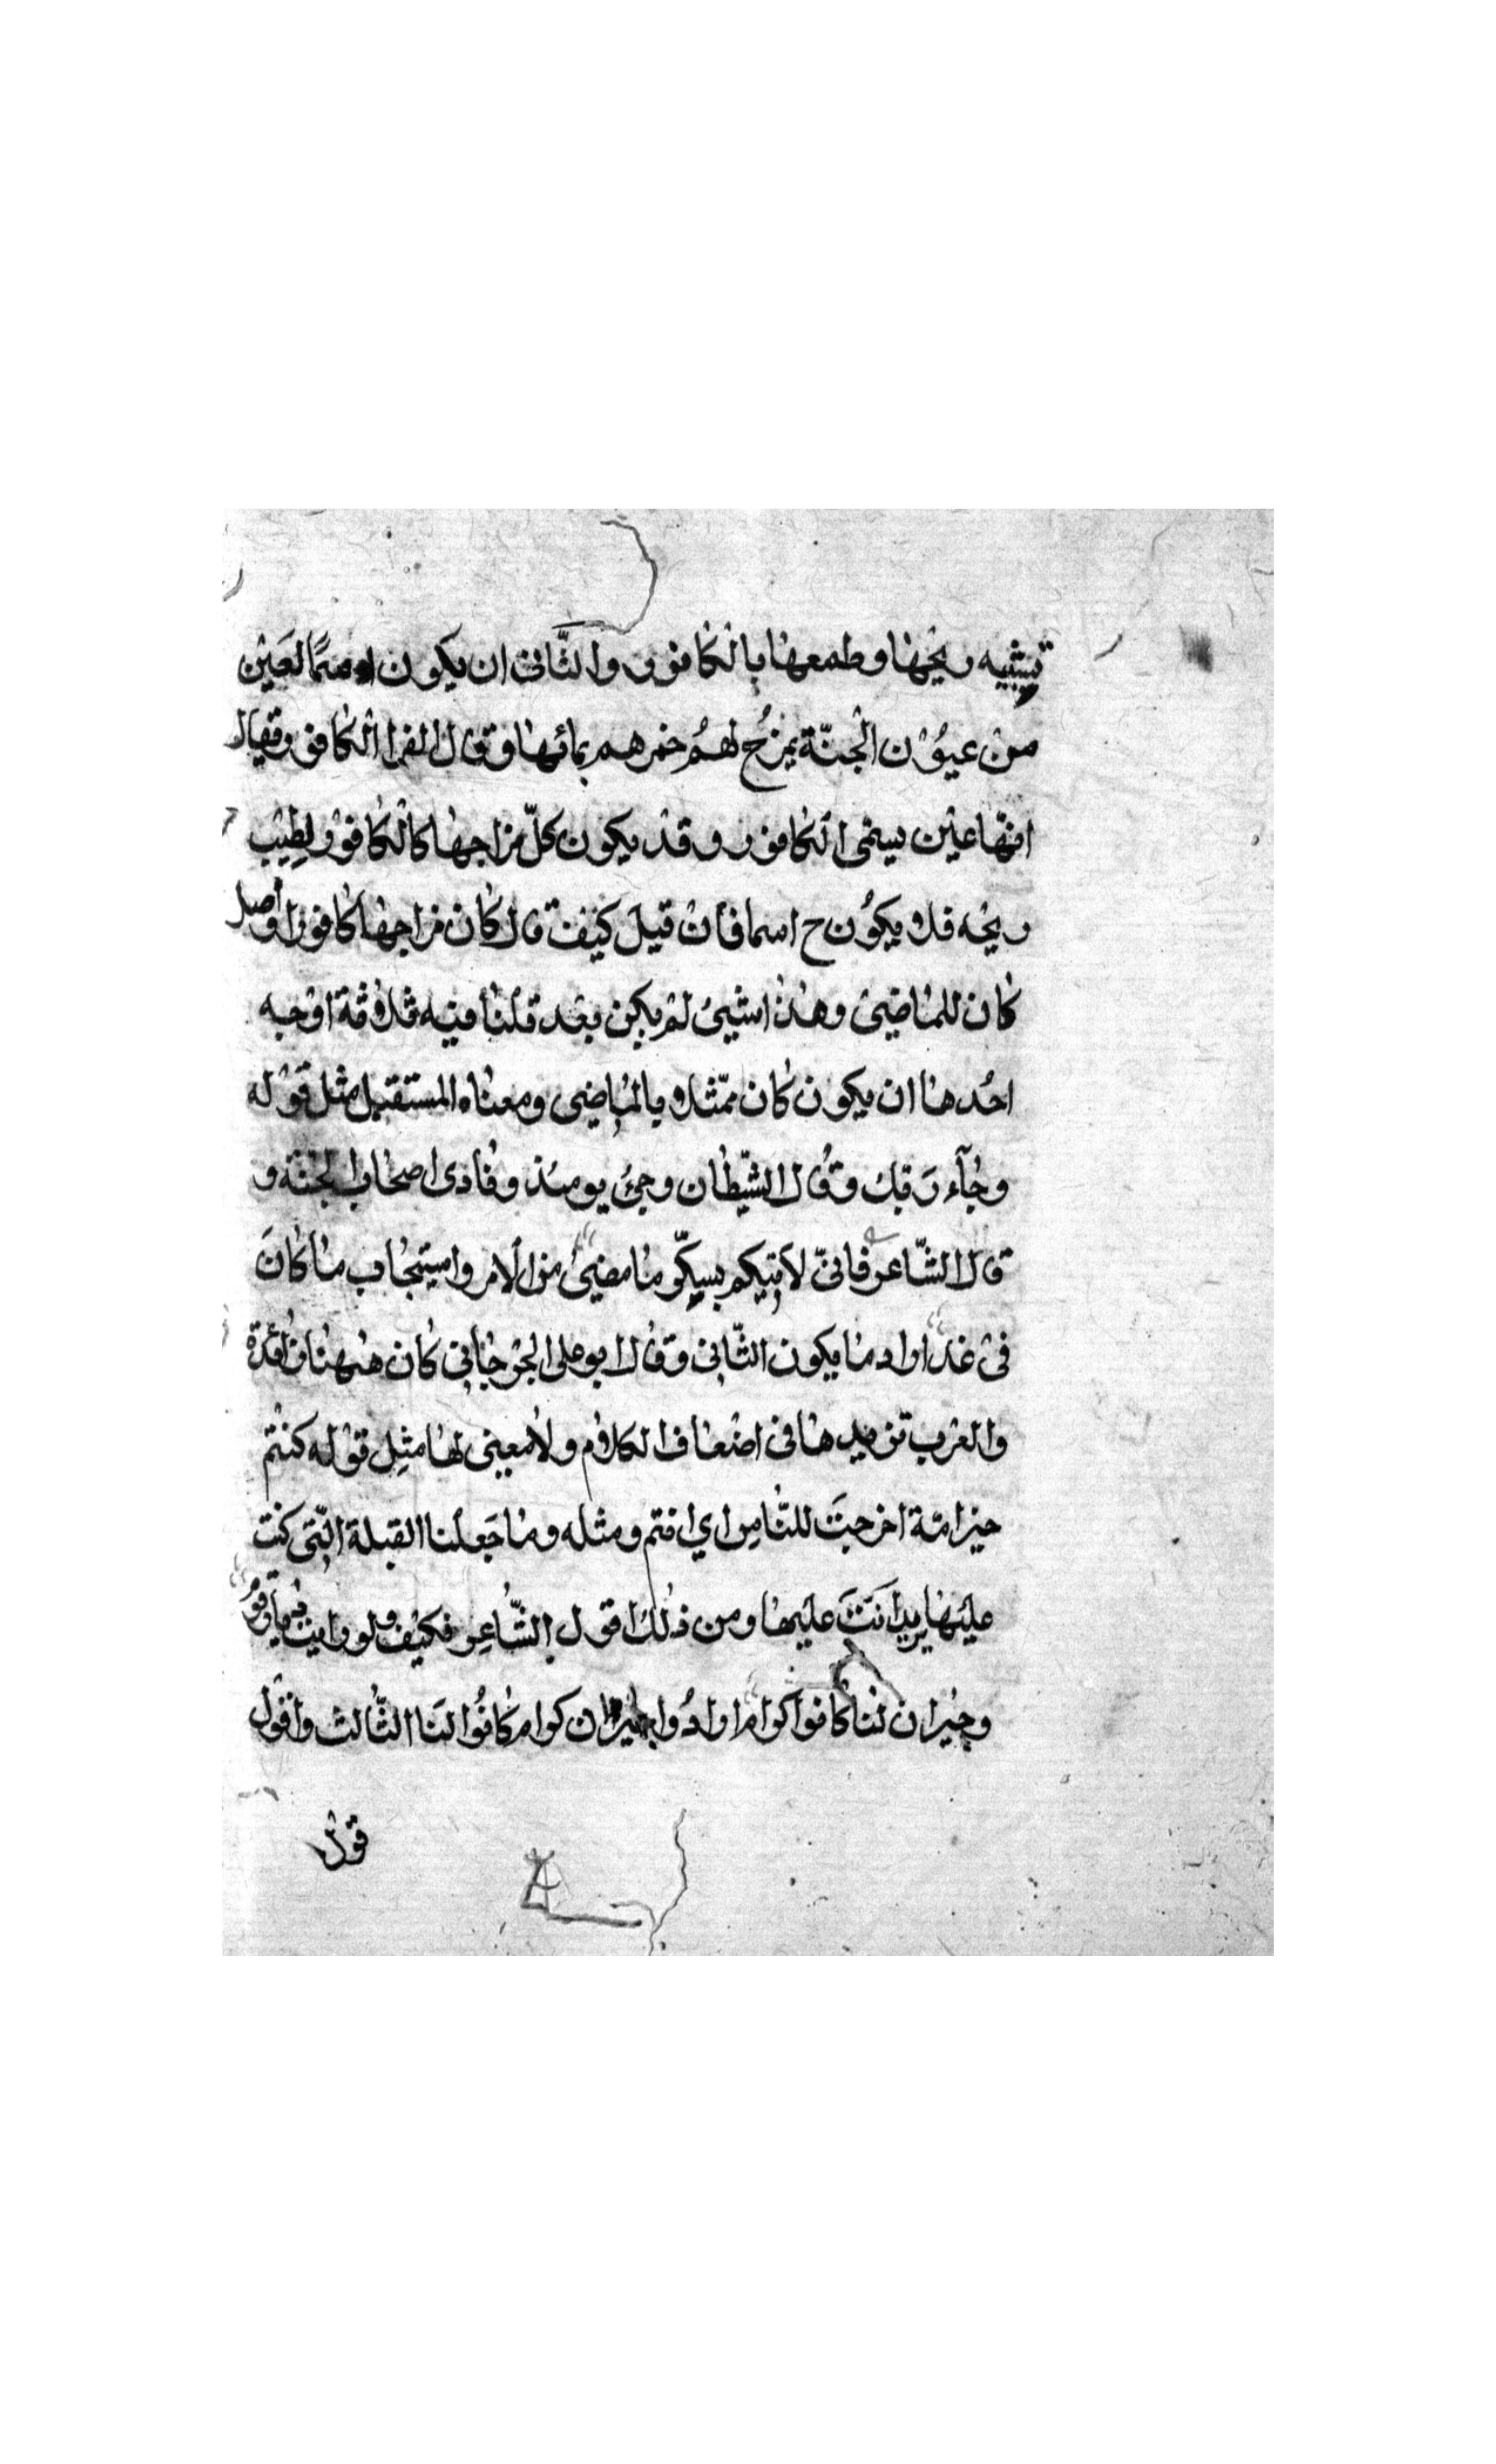 تشبيه ريحها وطمعها بالكافور والثاني ان يكون اسمًا لعين
من عيون الجنّة يمزج لهم خمرهم بمائها وقال الفرا الكافور يقال
انها عين يسمى الكافور وقد يكون كلّ مزاجها كالكافور لطيب
ريحه فلا يكون ح اسما فان قيل كيف قال كان مزاجها كافورا واصل
كان للماضي وهذا شيئ لم يكن بعد قلنا فيه ثلاثة اوجه
احدها ان يكون كان ممّثلا بالماضي ومعناه المستقبل مثل قوله
وجآء ربك وقال الشّيطان وجئ يومئذ ونادى اصحاب الجنّة و
قال الشّاعر فانّى لآتيكم بسكّو ما مضىٰ من الامر واستجاب ما كان
فى غد اراد ما يكون الثّانى وقال ابو على الجرجانى كان ههنا زائدة
والعرب تزيدها فى اضعاف الكلام ولا معنى لها مثل قوله كنتم
خير امّة اخرجت للنّاس اي انتم ومثله وما جعلنا القبلة الّتى كنت
عليها يريد انت عليها ومن ذلك قول الشّاعر فكيف ولو رايت ديار قوم
وجيران لنا كانوا كرام اراد وا جيران كرام كانوا لنا الثّالث واقول
قول